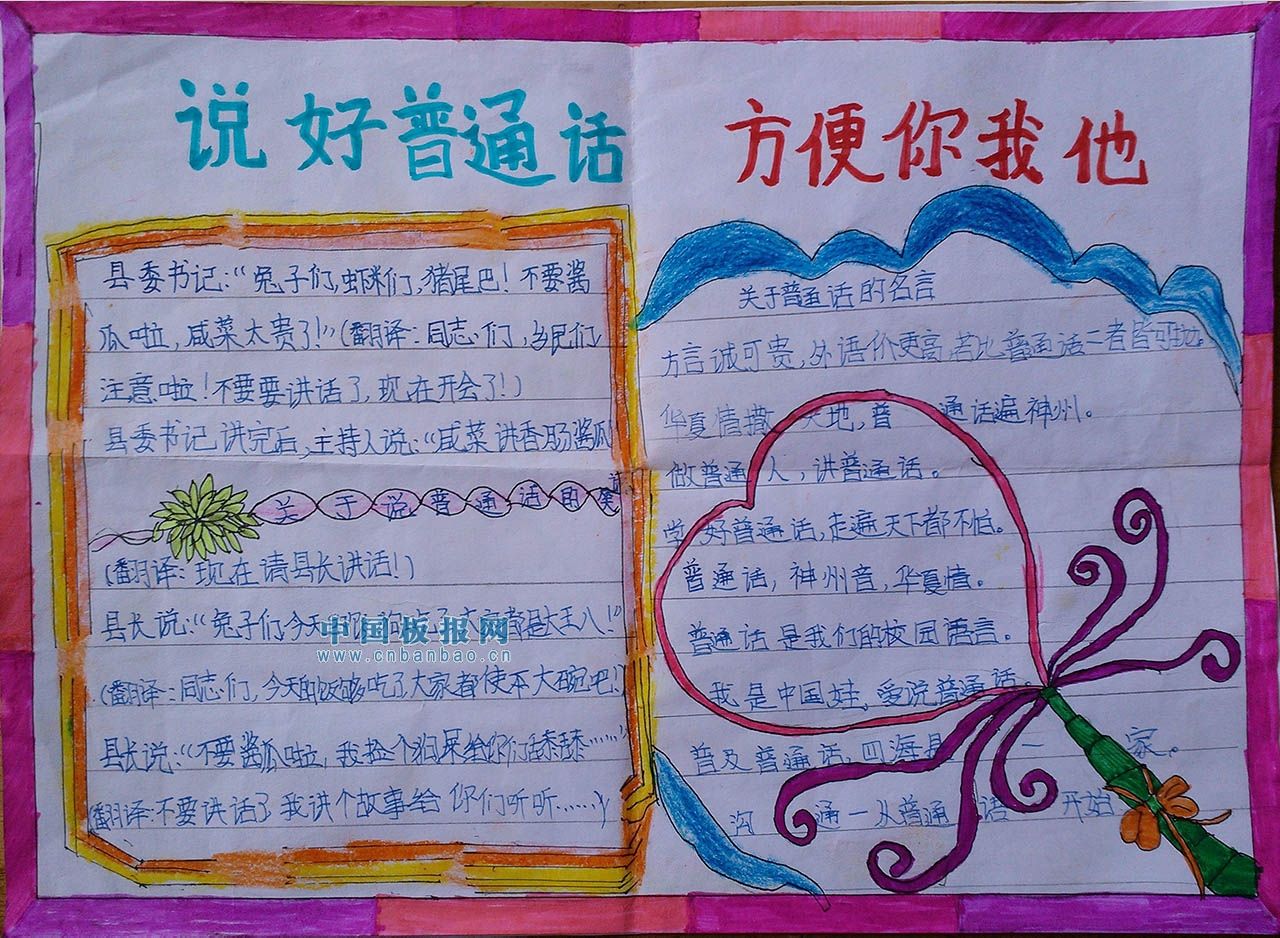 说好普通话 方便你我他
县委书记:“兔子们,虾米们,猪尾巴!不要酱
瓜啦,咸菜太贵了!”(翻译:同志们,乡民们
注意啦!不要要讲话了,现在开会了!)
县委书记讲完后,主持人说:“咸菜讲香肠酱瓜
关于说普通话的笑
(翻译:现在请县长讲话!)
县长说:“兔子们今天 大家都是大王八!”
中国板报网
www.cnbanbao.cn
(翻译:同志们,今天的饭够吃了大家都使本大碗吧!)
县长说:“不要酱瓜啦,我捡个狗屎给你们舔舔……”
(翻译:不要讲话了我讲个故事给你们听听……)
关于普通话的名言
方言诚可贵,外语价更高若比普通话二者皆可抛。
华夏情撒 天地,普通话遍神州。
做普通人,讲普通话。
学好普通话,走遍天下都不怕。
普通话,神州音,华夏情。
普通话是我们的校园语言。
我是中国娃,爱说普通话
普及普通话,四海 一家。
沟通—从普通话开始